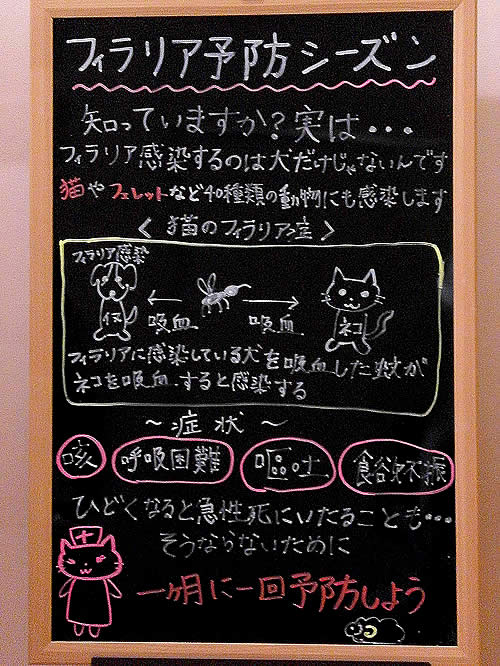 フィラリア予防シーズン
知っていますか？実は・・・
フィラリア感染するのは犬だけじゃないんです
猫やフェレットなど40種類の動物にも感染します
＜猫のフィラリア症＞
フィラリア感染
イヌ
吸血 吸血
ネコ
フィラリアに感染している犬を吸血した蚊が
ネコを吸血すると感染する
～症状～
咳 呼吸困難 嘔吐 食欲不振
ひどくなると急性死にいたることも・・・
そうならないために
一ヶ月に一回予防しよう